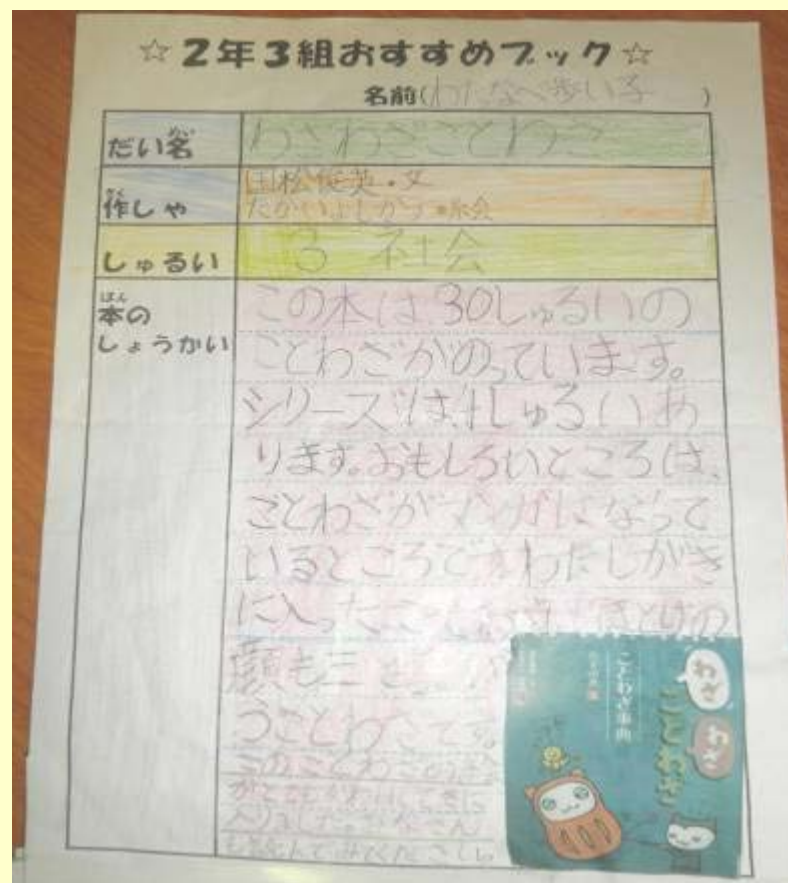 ☆2年3組おすすめブック☆
名前(わたなべ歩い子)
だい名 わざわざことわざ
作しゃ 国松俊英・文
たかいよしかず・絵
しゅるい 3 社会
本のしょうかい
この本は30しゅるいの
ことわざがのっています。
シリーズは、4しゅるいあ
ります。おもしろいところは、
ことわざがマンガになって
いるところです。わたしがき
に入ったことわざは、ほとけの
顔も三
うことわざです。
このことわざの
入りました。みなさん
も読んでみてください。
わざ
わざ
ことわざ
ことわざ事典